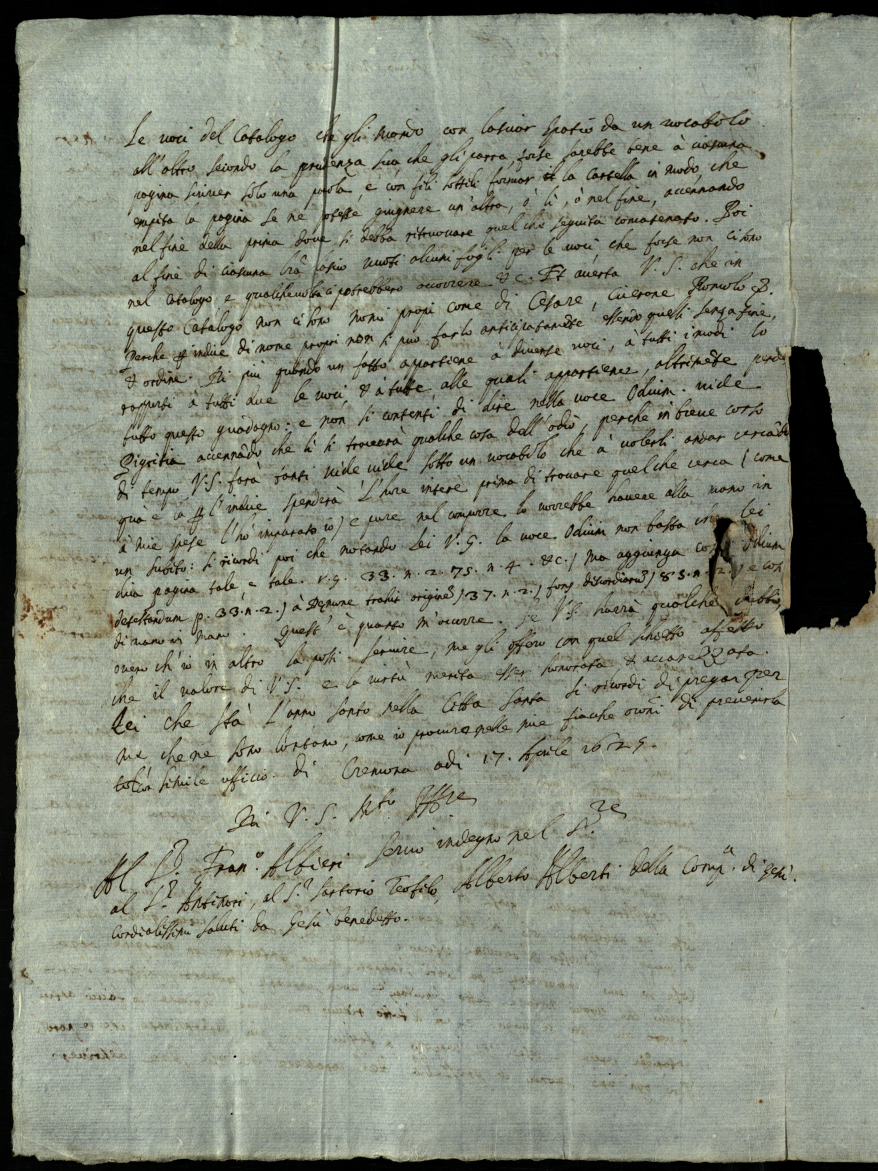 Le voci del Catalogo che gli mando con lasciar spatio da un vocabolo
all'altro secondo la prudenza sua che gli parrà, forse sarebbe bene à ciascuna
pagina scriver solo una parola, e con fili sottili formar la cartella in modo, che
empita la pagina se ne potesse giugnere un'altra, ò lì, ò nel fine, accennando
nel fine della prima dove si debba ritrovare quel che seguita comatenato. Poi
al fine di ciascuna lrã lascio vuoti alcuni fogli per le voci che forse non ci sono
nel Catalogo e qualche volta ci potrebbero occorrere &c. Et averta V. S. che in
questo Catalogo non ci sono nomi propri come di Cesare, Cicerone Romolo &.
perche indice di nome propri non si può farlo anticipatamẽte essendo quelli senza fine,
& ordine. Di più quando un fatto appartiene à diverse voci, à tutti i modi lo
rapporti à tutti due le voci, & à tutte alle quali appartiene, altrimẽte perde
tutto questo guadagno: e non si contenti di dire nella voce Odium. vide
Pigritia accennãdo che li si troverà qualche cosa dell'odio, perche in breve corso
di tempo V. S. farà tanti vide vide sotto un vocabolo che à volerli andar cercãdo
quà e là l'indice spenderà l'hore intere prima di trovare quel che cerca (come
à mie spese l'hò imparato io) e pure nel comporre lo vorrebbe havere alla mano in
un subito: si ricordi poi che notando lei V. S. la voce Odium non basta che lei
dica pagina tale, e tale. v. g. 33. n. 2. 75. n. 4. &c.) ma aggiunga così Odium
detestandum p. 33. n. 2.) à Demone trahit originẽ) 37. n. 2.) fons discordiarũ) 83. n. 2.) e così
di mano in mano. Quest'è quanto m'occorre. Se V. S. havrà qualche dubbio,
overo ch'io in altro la possi servire, me gli offero con quel schietto affetto
che il valore di V. S. e la virtù merita esser honorata & accarezzata.
Lei che stà l'anno santo nella Città Santa si ricordi di pregar per
me che ne sono lontano, come io procuro nelle mie fiacche orõni di prevenirla
con simile ufficio. di Cremona adi 17. Aprile 1625.
Di V. S. M.to Ill.re
Servo indegno nel S.re
Al S.r Fran.o Albieri
al S.r Antinori, al S.r Sartorio Teofilo, Alberto Alberti della Comp.a di Giesù.
cordialissimi saluti da Giesù benedetto.